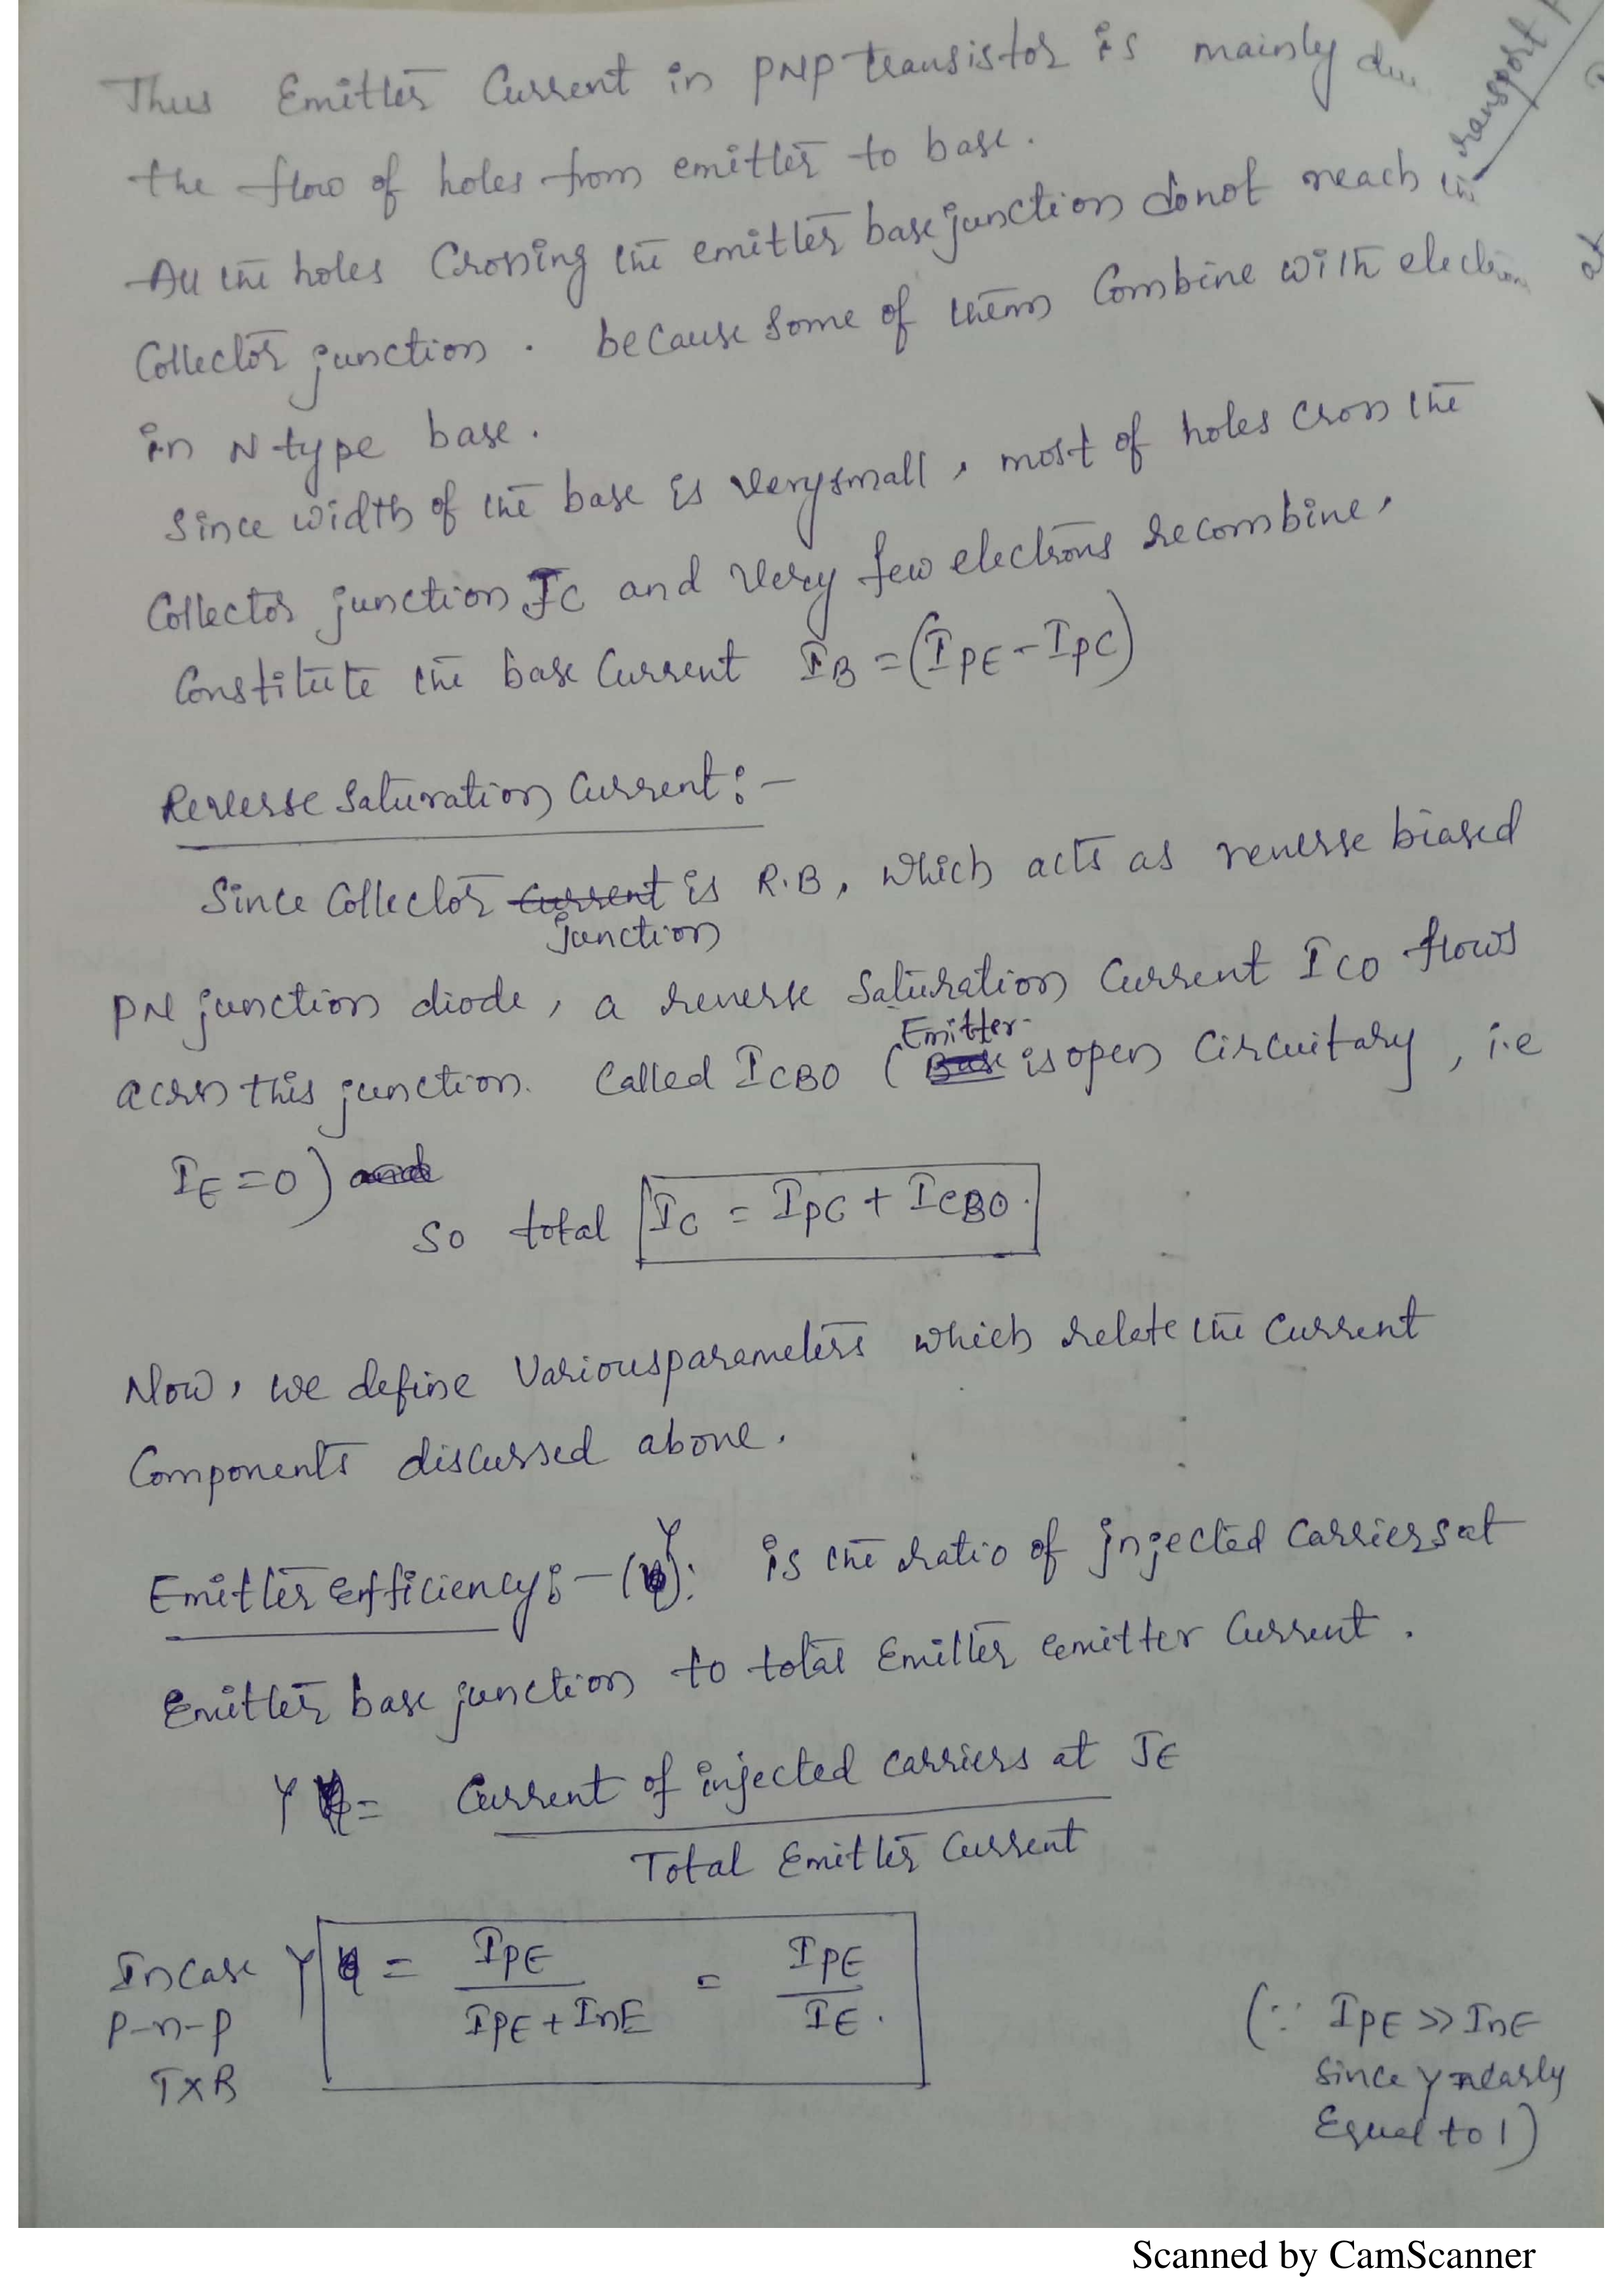 Thus Emitter Current in PNP transistor is mainly
the flow of holes from emitter to base.
All the holes Crossing the emitter base junction do not reach
Collector junction. because some of them Combine with electron
in N type base.
Since width of the base is very small, most of holes cross the
Collector junction JC and very few electrons recombine,
Constitute the base Current IB = (IPE - IPC)
Reverse Saturation Current:-
Since Collector Current is R.B, which acts as reverse biased
junction
PN junction diode, a reverse saturation Current ICO flows
Emitter
across this junction. Called ICBO (Base is open Circuitary, i.e
IE = 0) and
So total IC = IPC + ICBO.
Now, we define Various parameters which relate the Current
Components discussed above.
Emitter efficiency:- (γ): is the ratio of injected carriers at
Emitter base junction to total Emitter emitter Current.
γ = Current of injected carriers at JE
Total Emitter Current
In case γ = IPE / IPE + InE = IPE / IE.
P-n-p
TXR
(∵ IPE >> InE
Since γ nearly
Equal to 1)
transport
Scanned by CamScanner